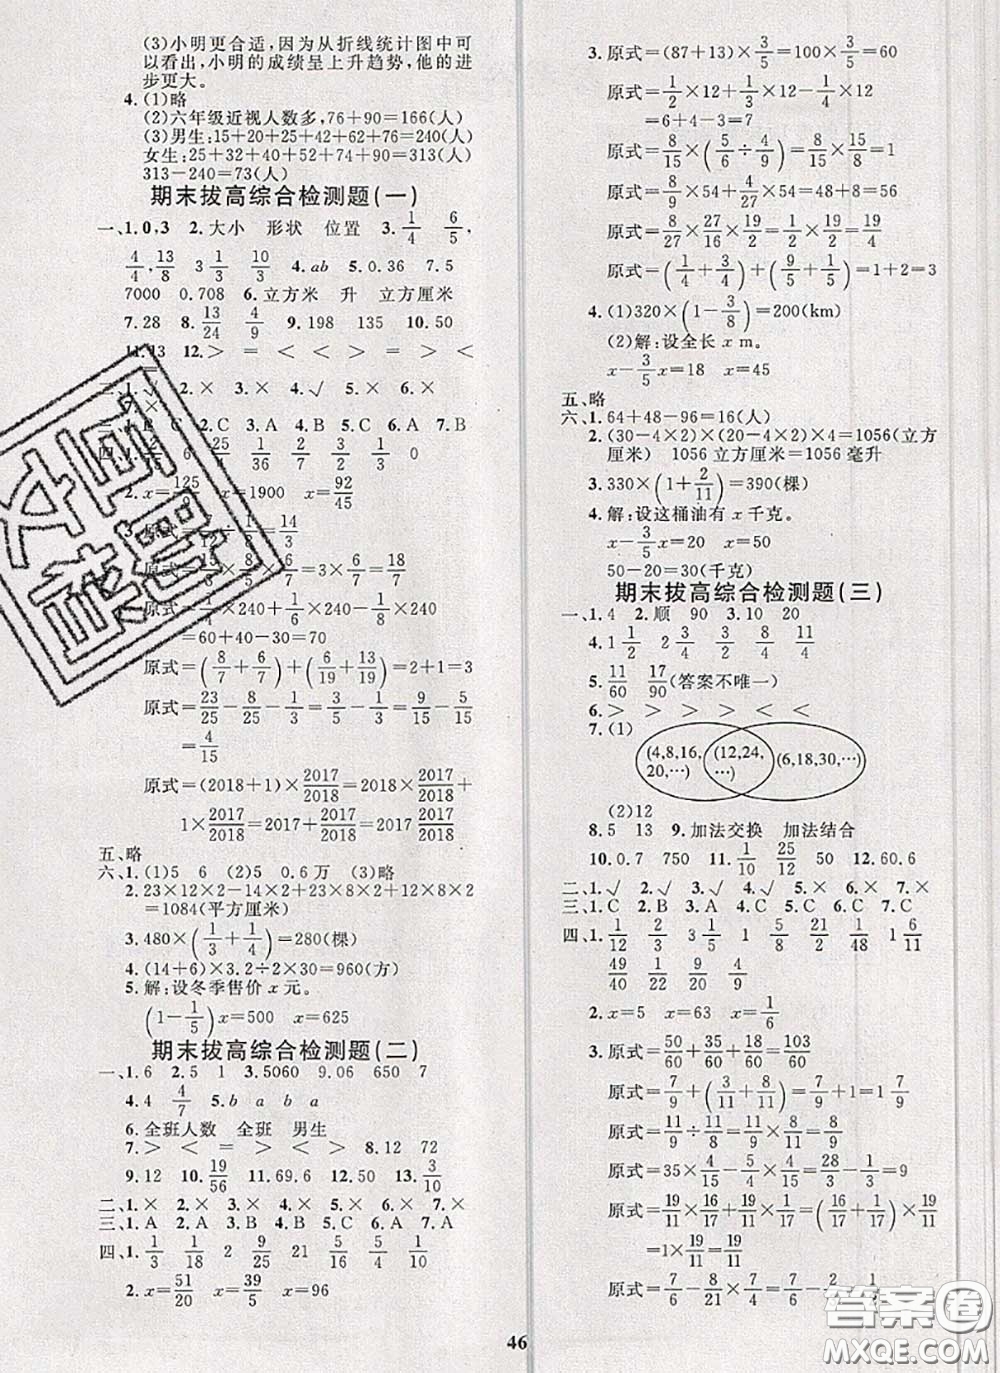 (3)小明更合适,因为从折线统计图中可
以看出,小明的成绩呈上升趋势,他的进
步更大。
4.(1)略
(2)六年级近视人数多,76+90=166(人)
(3)男生:15+20+25+42+62+76=240(人)
女生:25+32+40+50+52+74+90=313(人)
313-240=73(人)
期末拔高综合检测题(一)
一、1.0,3 2.大小 形状 位置 3.1/4 6/5,
4/4,13/8 3 1/3 10/3 4.ab 5.0.36 7.5
7000 0.708 6.立方米 升 立方厘米
7.28 8.13/24 4/9 9.198 135 10.50
11.13 12.> = < < > > <
1.√ 2.× 3.× 4.√ 5.× 6.×
C 2.C 3.A 4.B 5.C 6.A 7.B
6 25/36 1/36 2/7 3/4 1/3 0
2.x=125/9 x=1900 x=92/45
=14/3
原式=3/5×6/7=3×6/7=18/7
×240+ ×240- ×240
=60+40-30=70
原式=(8/7+6/7)+(6/19+13/19)=2+1=3
原式=23/25-8/25-1/3=3/5-1/3=9/15-5/15
=4/15
原式=(2018+1)×2017/2018=2018×2017/2018+
1×2017/2018=2017+2017/2018=2017 2017/2018
五、略
六、1.(1)5 6 (2)5 0.6万 (3)略
2.23×12×2-14×2+23×8×2+12×8×2
=1084(平方厘米)
3.480×(1/3+1/4)=280(棵)
4.(14+6)×3.2÷2×30=960(方)
5.解:设冬季售价x元。
(1-1/5)x=500 x=625
期末拔高综合检测题(二)
一、1.6 2.5 1 3.5060 9.06 650 7
4.4 4/7 5.b a b a
6.全班人数 全班 男生
7.> < = > < > 8.12 72
9.12 10.19/56 11.36 12.50 13.3/10
二、1.× 2.× 3.√ 4.√ 5.× 6.×
三、1.A 2.B 3.B 4.B 5.C 6.A 7.A
四、1.1/3 1/18 2 9/50 21 5/16 5/4 1/10
2.x=51/20 x=39/5 x=96
3.原式=(87+13)×3/5=100×3/5=60
原式=1/2×12+1/3×12-1/4×12
=6+4-3=7
原式=8/15×(5/6÷4/9)=8/15×15/8=1
原式=8/9×54+4/27×54=48+8=56
原式=27/16×16/27×19/2=1×19/2=19/2
原式=(1/4+3/4)+(9/5+1/5)=1+2=3
4.(1)320×(1-3/8)=200(km)
(2)解:设全长x m。
x-3/5x=18 x=45
五、略
六、1.64+48-96=16(人)
2.(30-4×2)×(20-4×2)×4=1056(立方
厘米) 1056立方厘米=1056毫升
3.330×(1+2/11)=390(棵)
4.解:设这桶油有x千克。
x-3/5x=20 x=50
50-20=30(千克)
期末拔高综合检测题(三)
一、1.4 2.顺 90 3.10 20
4.1 1/2 2 3/4 3/4 3/4
5.11/60 17/90(答案不唯一)
6.> > > > < <
7.(1)
(4,8,16,20,…) (12,24,…) (6,18,30,…)
(2)12
8.5 13 9.加法交换 加法结合
10.0.7 750 11.1/10 25/12 50 12.60.6
二、1.√ 2.√ 3.√ 4.× 5.×
三、1.C 2.B 3.A 4.C 5.C 6.A 7.C
四、1.1/12 2/3 3 1/5 1 5/8 21/2 1/48 6/11
49/40 1/21 0 1/2
2.x=5 x=6 x=1/6
3.原式=50/60+35/60+18/60=103/60
原式=7/9+(3/11+8/11)=7/9+1=1 7/9
原式=11/9÷11/8=11/9×8/11=8/9
原式=35×4/15-1/3=28/3-1/3=9
原式=19/11×16/17+19/11×1/17=(16/17+1/17)×19/11
=1×19/11=19/11
原式=7/6-8/21×7/4=7/6-2/3=1/2
46
答案卷
MXQE.COM